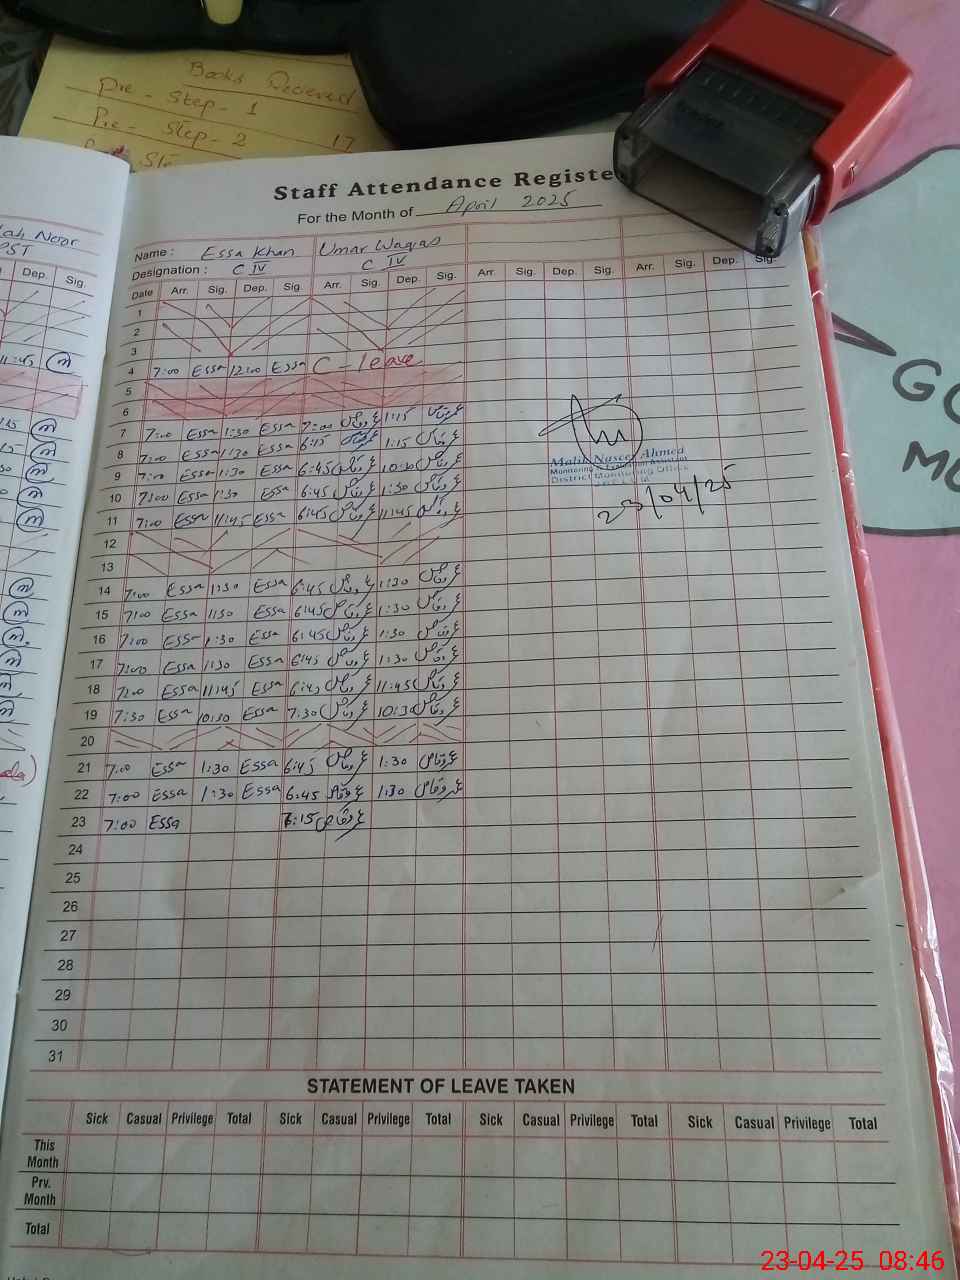 Books Recieved
Pre - Step - 1
Pre - Step - 2 17
Staff Attendance Registe
For the Month of April 2025
Name : Essa Khan Umar Waqas
Designation : C IV C IV
Date Arr. Sig. Dep. Sig Arr. Sig. Dep. Sig. Arr. Sig. Dep. Sig. Arr. Sig. Dep. Sig.
1
2
3
4 7:00 Essa 12:00 Essa C - leave
5
6
7 7:00 Essa 1:30 Essa 7:00 عمر وقاص 1:15 عمر وقاص
8 7:00 Essa 1:30 Essa 6:15 عمر وقاص 1:15 عمر وقاص
9 7:00 Essa 1:30 Essa 6:45 عمر وقاص 10:30 عمر وقاص
10 7:00 Essa 1:30 Essa 6:45 عمر وقاص 1:30 عمر وقاص
11 7:00 Essa 11:45 Essa 6:45 عمر وقاص 11:45 عمر وقاص
12
13
14 7:00 Essa 1:30 Essa 6:45 عمر وقاص 1:30 عمر وقاص
15 7:00 Essa 1:30 Essa 6:45 عمر وقاص 1:30 عمر وقاص
16 7:00 Essa 1:30 Essa 6:45 عمر وقاص 1:30 عمر وقاص
17 7:00 Essa 1:30 Essa 6:45 عمر وقاص 1:30 عمر وقاص
18 7:00 Essa 11:45 Essa 6:45 عمر وقاص 11:45 عمر وقاص
19 7:30 Essa 10:30 Essa 7:30 عمر وقاص 10:30 عمر وقاص
20
21 7:00 Essa 1:30 Essa 6:45 عمر وقاص 1:30 عمر وقاص
22 7:00 Essa 1:30 Essa 6:45 عمر وقاص 1:30 عمر وقاص
23 7:00 Essa 6:15 عمر وقاص
24
25
26
27
28
29
30
31
Malik Naseer Ahmed
Monitoring & Evaluation Assistant
District Monitoring Office
23/04/25
STATEMENT OF LEAVE TAKEN
Sick Casual Privilege Total Sick Casual Privilege Total Sick Casual Privilege Total Sick Casual Privilege Total
This Month
Prv. Month
Total
Dep. Sig.
GO
MO
23-04-25 08:46